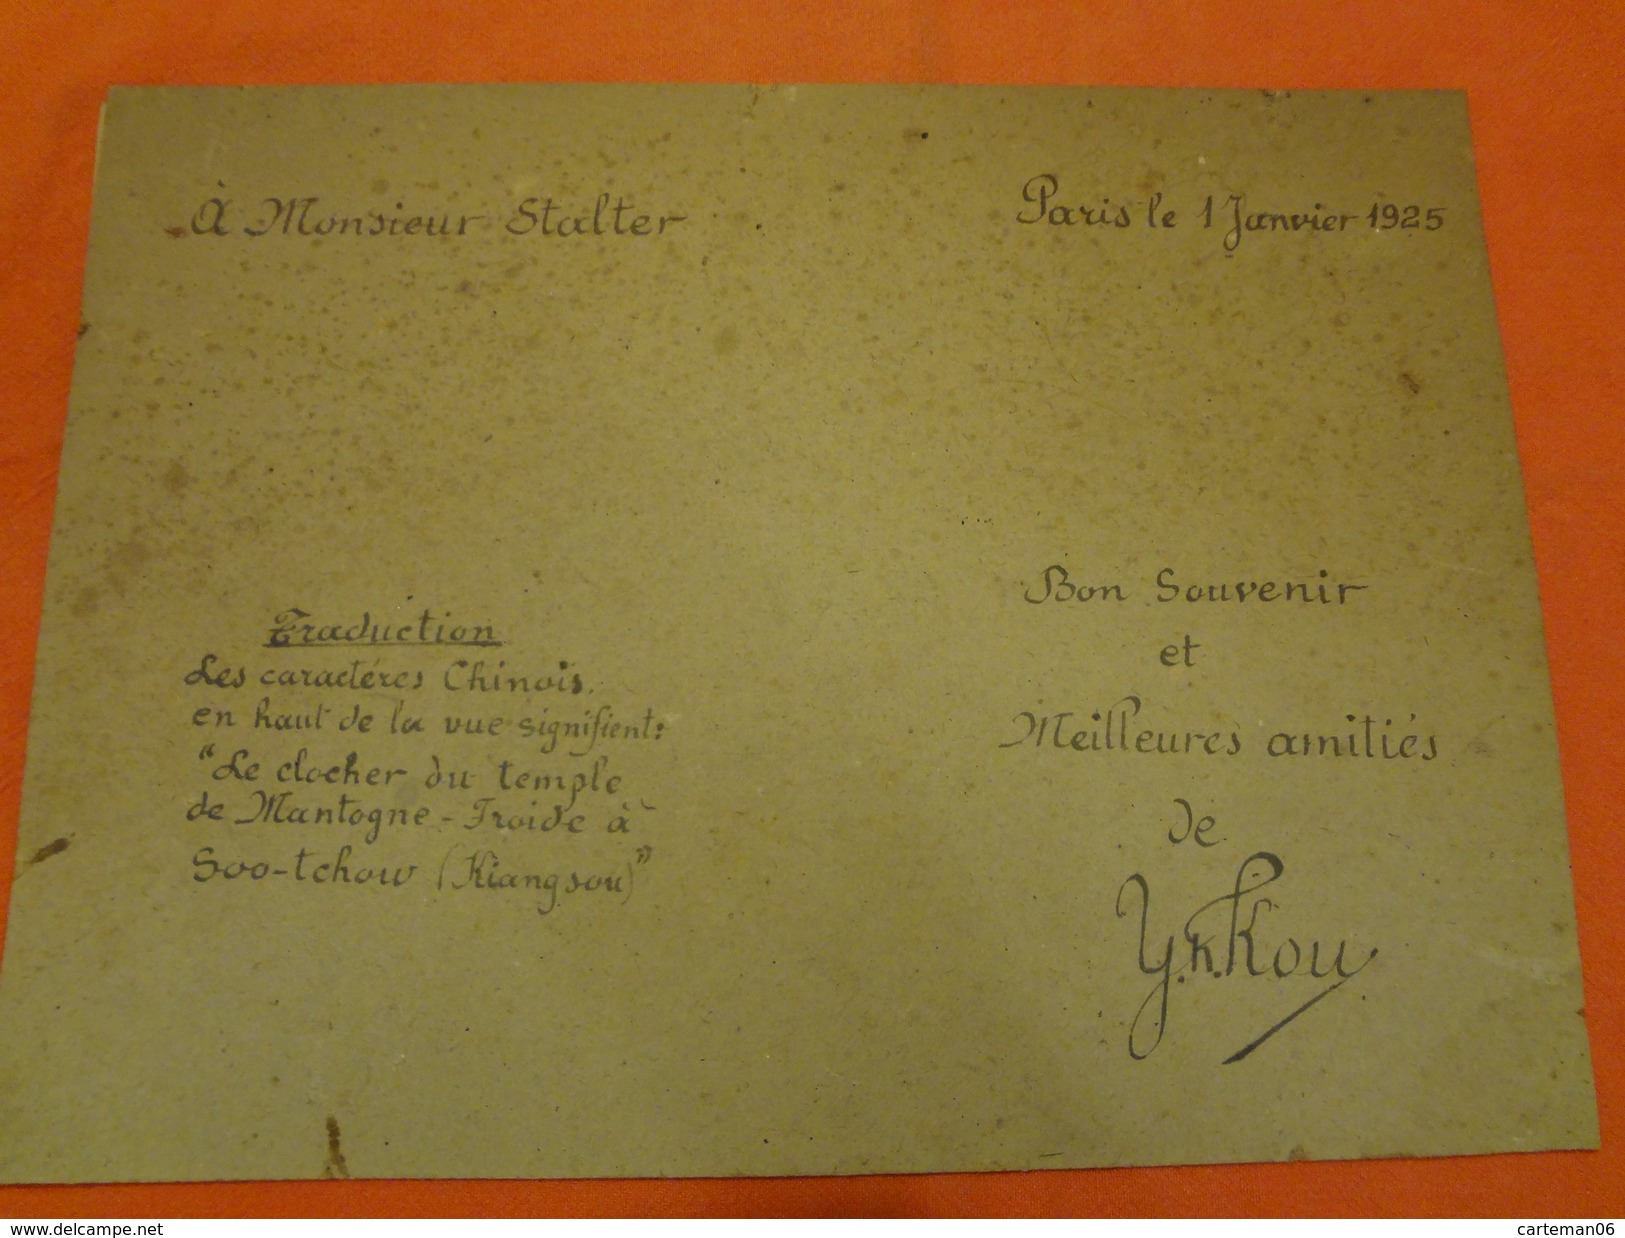 À Monsieur Stalter
Paris le 1 Janvier 1925
Traduction
Les caractéres Chinois.
en haut de la vue signifient:
"Le clocher du temple
de Mantogne-Froide à
Soo-tchow (Kiangsou)"
Bon Souvenir
et
Meilleures amitiés
de
Y.K.Kou
www.delcampe.net
carteman06